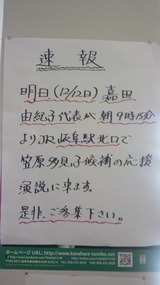 速報
明日(12/12日)嘉田
由紀子代表が朝9時15分
よりJR岐阜駅北口で
笠原多見子候補の応援
演説に来ます
是非、ご参集下さい。
ホームページ URL: http://www.kasahara-tamiko.net